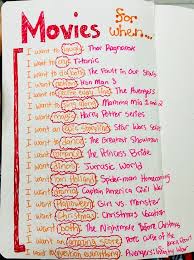 Movies for when...
I want to laugh: Thor Ragnarok
I want to cry: Titanic
I want to: The Fault in Our Stars
I want Iron Man 3
I want to every line: The Avengers
I want to sing along: Mamma mia 1 and 2
I want magic: Harry Potter Series
I want an epic storyline: Star Wars
I want to dance: The Greatest Showman
I want romance: The Princess Bride
I want Jurassic World
I want Tom Holland: Spider-man Homecoming
I want drama: Captain America Civil War
I want Halloween: Girl vs. Monster
I want Christmas: Christmas Vacation
I want both: The Nightmare Before Christmas
I want an amazing score: Pirates curse of the Black Pearl
I want to question everything: Avengers: Infinity War